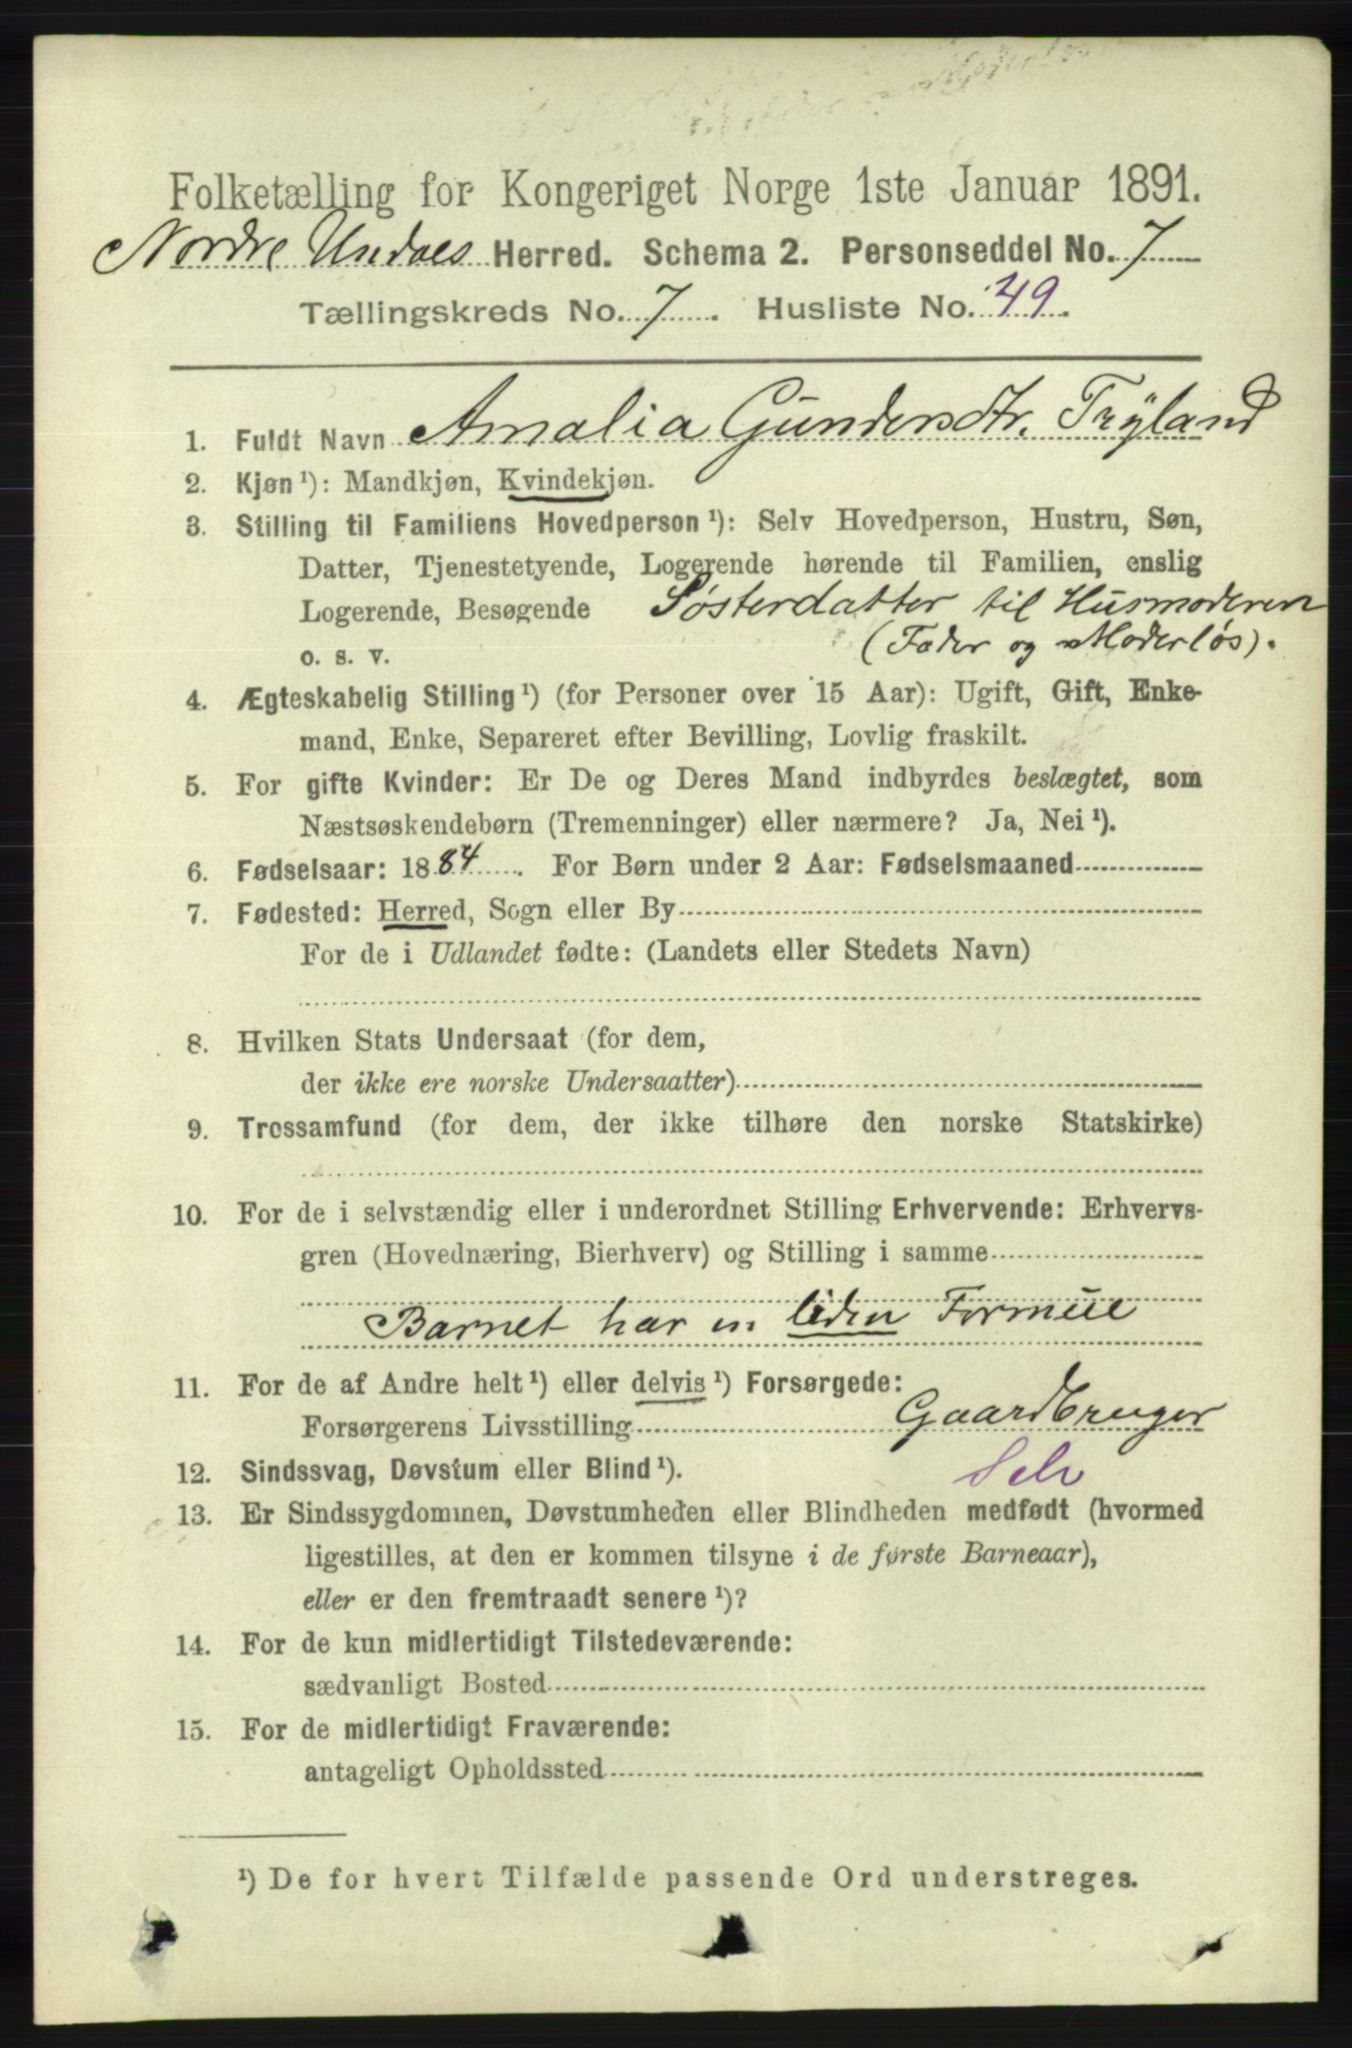 Folketælling for Kongeriget Norge 1ste Januar 1891.
Nordre Undals Herred. Schema 2. Personseddel No. 7
Tællingskreds No. 7. Husliste No. 49.
1. Fuldt Navn Amalia Gundersdtr. Tryland
2. Kjøn ¹): Mandkjøn, Kvindekjøn.
3. Stilling til Familiens Hovedperson ¹): Selv Hovedperson, Hustru, Søn,
Datter, Tjenestetyende, Logerende hørende til Familien, enslig
Logerende, Besøgende Søsterdatter til Husmoderen
o. s. v. (Fader og Moderløs).
4. Ægteskabelig Stilling ¹) (for Personer over 15 Aar): Ugift, Gift, Enke-
mand, Enke, Separeret efter Bevilling, Lovlig fraskilt.
5. For gifte Kvinder: Er De og Deres Mand indbyrdes beslægtet, som
Næstsøskendebørn (Tremenninger) eller nærmere? Ja, Nei ¹).
6. Fødselsaar: 1884. For Børn under 2 Aar: Fødselsmaaned
7. Fødested: Herred, Sogn eller By
For de i Udlandet fødte: (Landets eller Stedets Navn)
8. Hvilken Stats Undersaat (for dem,
der ikke ere norske Undersaatter)
9. Trossamfund (for dem, der ikke tilhøre den norske Statskirke)
10. For de i selvstændig eller i underordnet Stilling Erhvervende: Erhvervs-
gren (Hovednæring, Bierhverv) og Stilling i samme
Barnet har en liden Formue
11. For de af Andre helt ¹) eller delvis ¹) Forsørgede:
Forsørgerens Livsstilling Gaardbruger
12. Sindssvag, Døvstum eller Blind ¹). Selv
13. Er Sindssygdommen, Døvstumheden eller Blindheden medfødt (hvormed
ligestilles, at den er kommen tilsyne i de første Barneaar),
eller er den fremtraadt senere ¹)?
14. For de kun midlertidigt Tilstedeværende:
sædvanligt Bosted
15. For de midlertidigt Fraværende:
antageligt Opholdssted
¹) De for hvert Tilfælde passende Ord understreges.